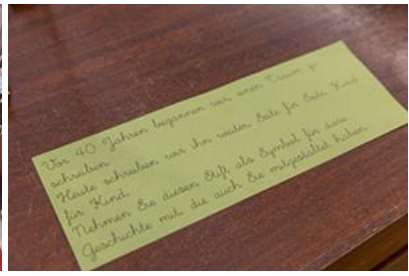 Vor 40 Jahren begannen wir einen Traum zu
schreiben
Heute schreiben wir ihn weiter Seite für Seite Kind
für Kind
Nehmen Sie diesen Stift als Symbol für diese
Geschichte mit die auch Sie mitgestaltet haben